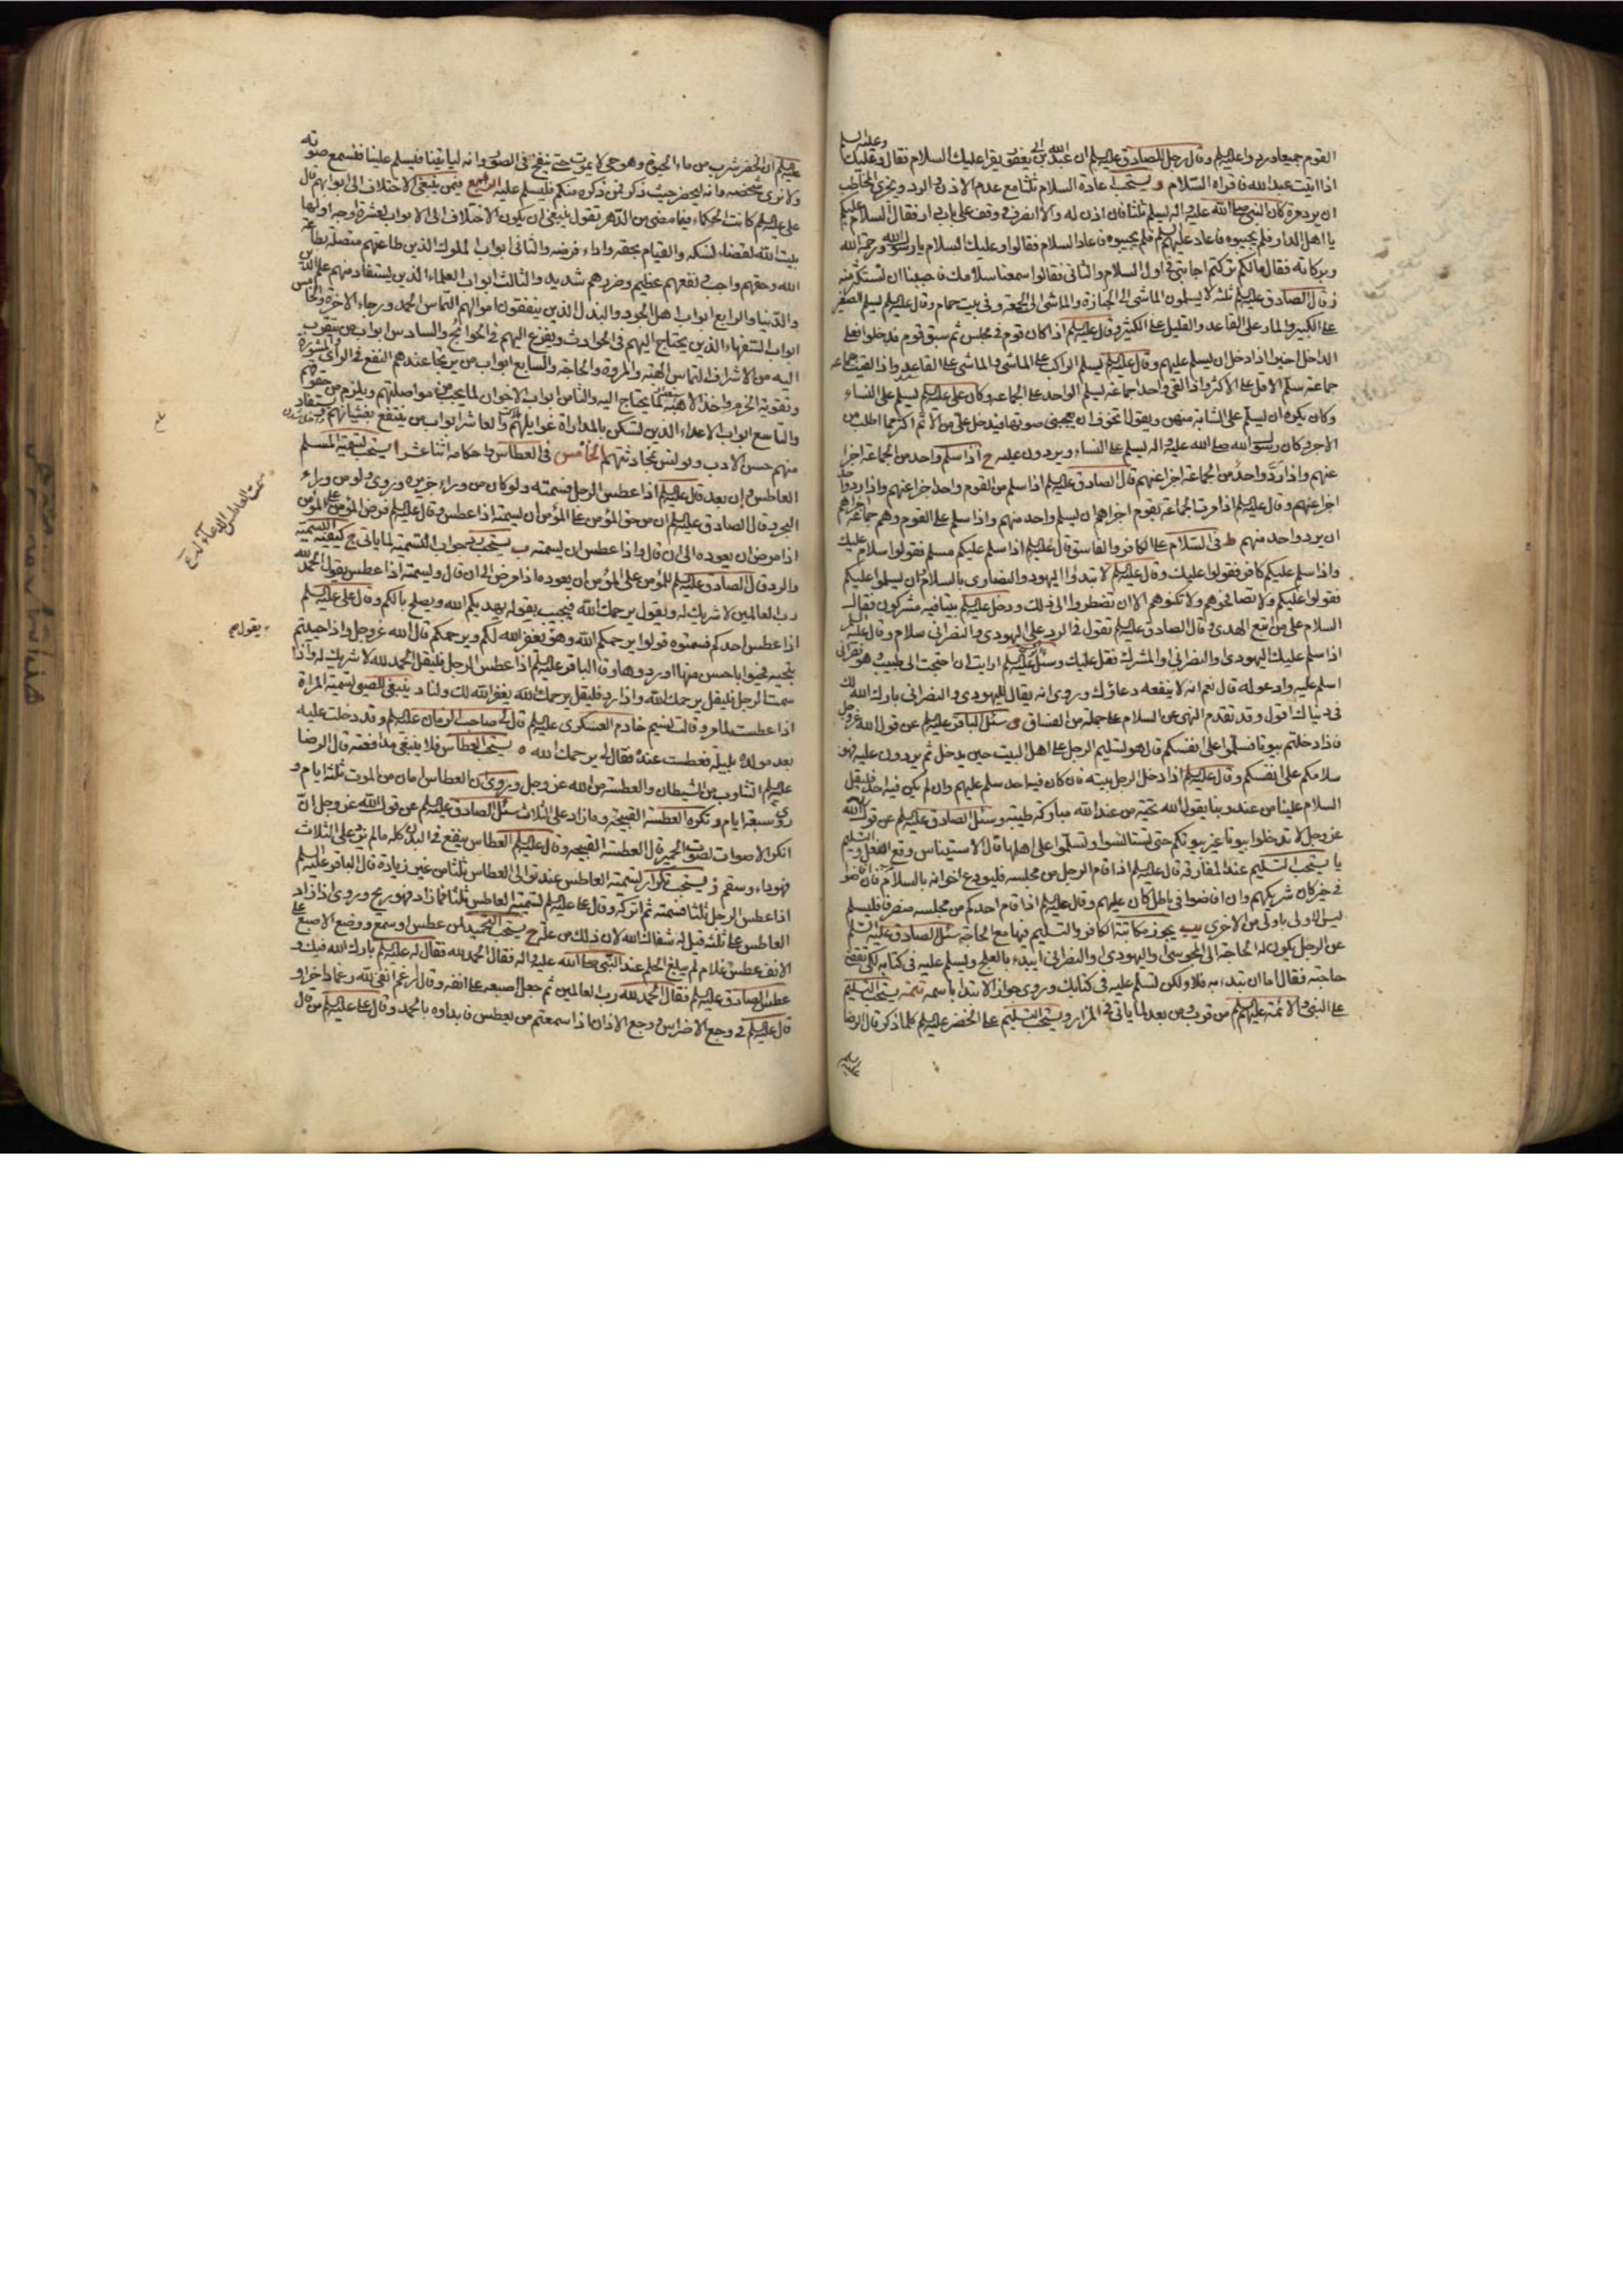 القوم جميعا وردوا عليهم وقال رجل للصادق عليه السلم ان عبد الله بن ابي يعفور يقرا عليك السلام فقال وعليك وعليه السلم
اذا اتيت عبد الله فاقراه السلام و يستحب اعادة السلام ثلثا مع عدم الاذن والرد ويجزي المخاطب
ان يرد مرة كان النبي صلى الله عليه واله يسلم ثلثا فان اذن له والا انصرف ووقف على باب دار فقال السلام عليكم
يا اهل الدار فلم يجيبوه فاعاد عليهم السلم فلم يجيبوه فاعاد السلام فقالوا وعليك السلام يا رسول الله ورحمة الله
وبركاته فقال مالكم تركتم اجابتي في اول السلام والثاني فقالوا سمعنا سلامك فاحببنا ان نستكثر منه
ز قال الصادق عليه السلم ثلثة لا يسلمون الماشي الى الجنازة والماشي الى الجمعة وفي بيت حمام وقال عليه السلم يسلم الصغير
على الكبير والمار على القاعد والقليل على الكثير وقال عليه السلم اذا كان قوم في مجلس ثم سبق قوم فدخلوا فعلى
الداخل اخيرا اذا دخل ان يسلم عليهم وقال عليه السلم يسلم الراكب على الماشي والماشي على القاعد واذا لقيت جماعة
جماعة سلم الاقل على الاكثر واذا لقي واحد جماعة يسلم الواحد على الجماعة وكان علي عليه السلم يسلم على النساء
وكان يكره ان يسلم على الشابة منهن ويقول اتخوف ان يعجبني صوتها فيدخل علي من الاثم اكثر مما اطلب من
الاجر وكان رسول الله صلى الله عليه واله يسلم على النساء ويرددن عليه ح اذا سلم واحد من الجماعة اجزا
عنهم واذا رد واحد من الجماعة اجزا عنهم قال الصادق عليه السلم اذا سلم من القوم واحد اجزا عنهم واذا رد واحد
اجزا عنهم وقال عليه السلم اذا مرت الجماعة بقوم اجزاهم ان يسلم واحد منهم واذا سلم على القوم وهم جماعة اجزاهم
ان يرد واحد منهم ط في السلام على الكافر والفاسق قال عليه السلم اذا سلم عليكم مسلم فقولوا سلام عليك
واذا سلم عليكم كافر فقولوا عليك وقال عليه السلم لا تبدءوا اليهود والنصارى بالسلام وان سلموا عليكم
فقولوا عليكم ولا تصافحوهم ولا تكنوهم الا ان تضطروا الى ذلك ودخل عليه السلم بيتا فيه مشركون فقال
السلام على من اتبع الهدى وقال الصادق عليه السلم تقول في الرد على اليهودي والنصراني سلام وقال عليه السلم
اذا سلم عليك اليهودي والنصراني والمشرك فقل عليك وسئل عليه السلم ارايت ان احتجت الى طبيب وهو نصراني
اسلم عليه وادعو له قال نعم انه لا ينفعه دعاؤك وروي انه يقال لليهودي والنصراني بارك الله لك
في دنياك اقول وقد تقدم النهي عن السلام على جملة من الفساق ي سئل الباقر عليه السلم عن قول الله عز وجل
فاذا دخلتم بيوتا فسلموا على انفسكم قال هو تسليم الرجل على اهل البيت حين يدخل ثم يردون عليه فهو
سلامكم على انفسكم وقال عليه السلم اذا دخل الرجل بيته فان كان فيه احد سلم عليهم وان لم يكن فيه احد فليقل
السلام علينا من عند ربنا يقول الله تحية من عند الله مباركة طيبة وسئل الصادق عليه السلم عن قول الله
عز وجل لا تدخلوا بيوتا غير بيوتكم حتى تستانسوا وتسلموا على اهلها قال الاستيناس وقع النعل والتسليم
يا يستحب التسليم عند المفارقة قال عليه السلم اذا قام الرجل من مجلسه فليودع اخوانه بالسلام فان افاضوا
في خير كان شريكهم وان افاضوا في باطل كان عليهم وقال عليه السلم اذا قام احدكم من مجلسه منصرفا فليسلم
ليس الاولى باولى من الاخرى يب يجوز مكاتبة الكافر والتسليم فيها مع الحاجة سئل الصادق عليه السلم
عن الرجل يكون له الحاجة الى المجوسي او اليهودي او النصراني ايبدء بالعلج ويسلم عليه في كتابه لكي تقضى
حاجته فقال اما ان تبدء به فلا ولكن تسلم عليه في كتابك وروي جواز الابتدا باسمه تتمة يستحب التسليم
على النبي والائمة عليهم السلم من قرب ومن بعد لما ياتي في المزار ويستحب التسليم على الخضر عليه السلم كلما ذكر قال الرضا
عليه السلم
عليه السلم ان الخضر شرب من ماء الحيوة وهو حي لا يموت حتى ينفخ في الصور وانه لياتينا فيسلم علينا فنسمع صوته
ولا نرى شخصه وانه ليحضر حيث ذكر فمن ذكره منكم فليسلم عليه الرابع فيمن ينبغي الاختلاف الى ابوابهم قال
علي عليه السلم كانت الحكماء فيما مضى من الدهر تقول ينبغي ان يكون الاختلاف الى الابواب لعشرة اوجه اولها
بيت الله لقضاء نسكه والقيام بحقه واداء فرضه والثاني ابواب الملوك الذين طاعتهم متصلة بطاعة
الله وحقهم واجب ونفعهم عظيم وضرهم شديد والثالث ابواب العلماء الذين يستفاد منهم علم الدين
والدنيا والرابع ابواب اهل الجود والبذل الذين ينفقون اموالهم التماس الحمد ورجاء الاخرة والخامس
ابواب السفهاء الذين يحتاج اليهم في الحوادث ويفزع اليهم في الحوائج والسادس ابواب من يتقرب
اليه من الاشراف لالتماس الهبة والمروة والحاجة والسابع ابواب من يرتجا عندهم النفع في الراي والمشورة
وتقوية الحزم واخذ الاهبة لما يحتاج اليه والثامن ابواب الاخوان لما يجب من مواصلتهم ويلزم من حقوقهم
والتاسع ابواب الاعداء الذين تسكن بالمداراة غوايلهم والعاشر ابواب من ينتفع بغشيانهم ويستفاد
منهم حسن الادب ويونس بمحادثتهم الخامس في العطاس واحكامه اثنا عشر ا يستحب تسمية المسلم
العاطس وان بعد قال عليه السلم اذا عطس الرجل فسمته ولو كان من وراء جزيرة وروي ولو من وراء
البحر وقال الصادق عليه السلم ان من حق المؤمن على المؤمن ان يسمته اذا عطس وقال عليه السلم فرض المؤمن على المؤمن
اذا مرض ان يعوده الى ان قال واذا عطس ان يسمته ب يستحب جواب التسمية لما ياتي ج كيفية التسمية
والرد قال الصادق عليه السلم للمؤمن على المؤمن ان يعوده اذا مرض الى ان قال ويسمته اذا عطس يقول الحمد لله
رب العالمين لا شريك له ويقول يرحمك الله فيجيب بقوله يهديكم الله ويصلح بالكم وقال علي عليه السلم
اذا عطس احدكم فسمتوه قولوا يرحمكم الله وهو يغفر الله لكم ويرحمكم قال الله عز وجل واذا حييتم
بتحية فحيوا باحسن منها او ردوها وقال الباقر عليه السلم اذا عطس الرجل فليقل الحمد لله لا شريك له واذا
سمت الرجل فليقل يرحمك الله واذا رد فليقل يرحمك الله يغفر الله لك ولنا د ينبغي للصبي تسمية المراة
اذا عطست لما مر وقالت نسيم خادم العسكري عليه السلم قال لي صاحب الزمان عليه السلم وقد دخلت عليه
بعد مولده بليلة فعطست عنده فقال لي يرحمك الله ه يستحب العطاس فلا ينبغي مدافعته قال الرضا
عليه السلم التثاوب من الشيطان والعطسة من الله عز وجل وروي ان العطاس امان من الموت ثلثة ايام و
روي سبعة ايام و تكره العطسة القبيحة وما زاد على الثلاث سئل الصادق عليه السلم عن قول الله عز وجل ان
انكر الاصوات لصوت الحمير قال العطسة القبيحة وقال عليه السلم العطاس ينفع في البدن كله ما لم يزد على الثلاث
فهو داء وسقم ز يستحب تكرار تسمية العاطس عند توالي العطاس ثلثا من غير زيادة قال الباقر عليه السلم
اذا عطس الرجل ثلثا فسمته ثم اتركه وقال علي عليه السلم تسمية العاطس ثلثا فما زاد فهو ريح وروي اذا زاد
العاطس على ثلثة قيل له شفاك الله لان ذلك من علة ح يستحب التحميد لمن عطس او سمع ووضع الاصبع على
الانف عطس غلام لم يبلغ الحلم عند النبي صلى الله عليه واله فقال الحمد لله فقال له عليه السلم بارك الله فيك و
عطس الصادق عليه السلم فقال الحمد لله رب العالمين ثم جعل اصبعه على انفه وقال رغم انفي لله رغما داخرا و
قال عليه السلم في وجع الاضراس ووجع الاذان اذا سمعتم من يعطس فابداوه بالحمد وقال علي عليه السلم من قال